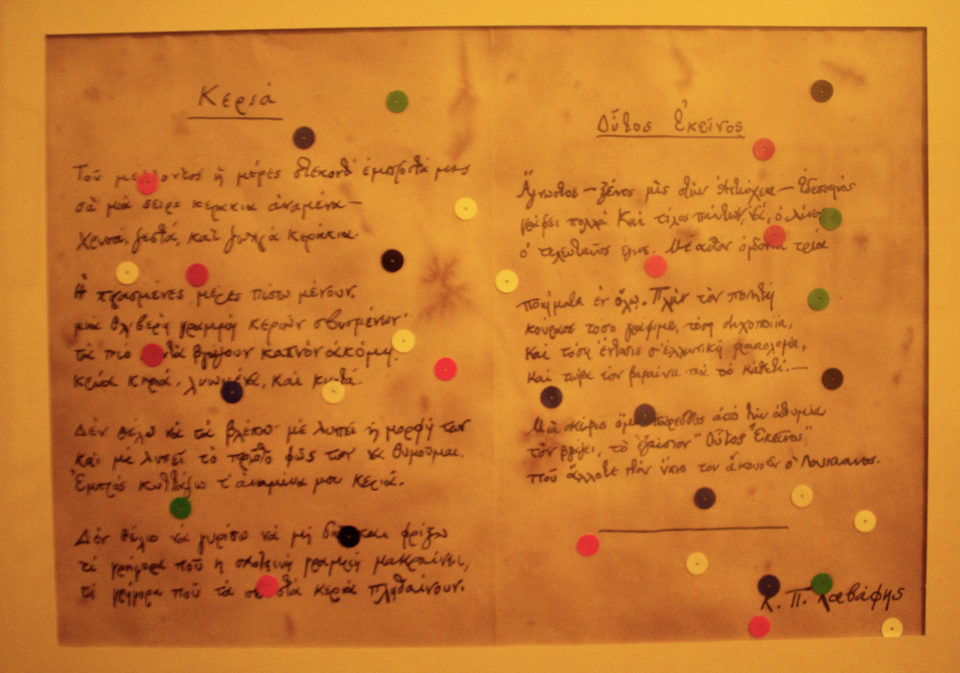 Κεριά
Τοῦ ἡ μέρες στέκοντ' ἐμπροστά μας
σὰ μιὰ σειρὰ κεράκια ἀναμένα —
χρυσά, ζεστά, καὶ ζωηρὰ κεράκια.
Ἡ περασμένες μέρες πίσω μένουν,
μιὰ θλιβερὴ γραμμὴ κεριῶν σβυσμένων·
τὰ πιὸ βγάζουν καπνὸν ἀκόμη,
κρύα κεριά, λυωμένα, καὶ κυρτά.
Δὲν θέλω νὰ τὰ βλέπω· μὲ λυπεῖ ἡ μορφή των
καὶ μὲ λυπεῖ τὸ πρῶτο φῶς των νὰ θυμοῦμαι.
Ἐμπρὸς κυττάζω τ' ἀναμένα μου κεριά.
Δὲν θέλω νὰ γυρίσω νὰ μὴ καὶ φρίξω
τί γρήγορα ποῦ ἡ σκοτεινὴ γραμμὴ μακραίνει,
τί γρήγορα ποῦ τὰ κεριὰ πληθαίνουν.
Οὗτος Ἐκεῖνος
Ἄγνωστος — ξένος μὲς στὴν Ἀντιόχεια — Ἐδεσηνὸς
γράφει πολλά. Καὶ τέλος πάντων, νά, ὁ
ὁ τελευταῖος ἔγινε. Μὲ αὐτὸν τρία
ποιήματα ἐν ὅλῳ. Πλὴν τὸν ποιητὴ
κούρασε τόσο γράψιμο, τόση στιχοποιΐα,
καὶ τόση ἔντασις σ' ἑλληνικὴ φρασιολογία,
καὶ τώρα τὸν βαραίνει πιὰ τὸ καθετί. —
Μιὰ σκέψις ἀπὸ τὴν ἀθυμία
τὸν βγάζει, τὸ ἐξαίσιον "Οὗτος Ἐκεῖνος"
ποῦ ἄλλοτε στὸν ὕπνο του ἄκουσεν ὁ Λουκιανός.
Κ. Π. Καβάφης